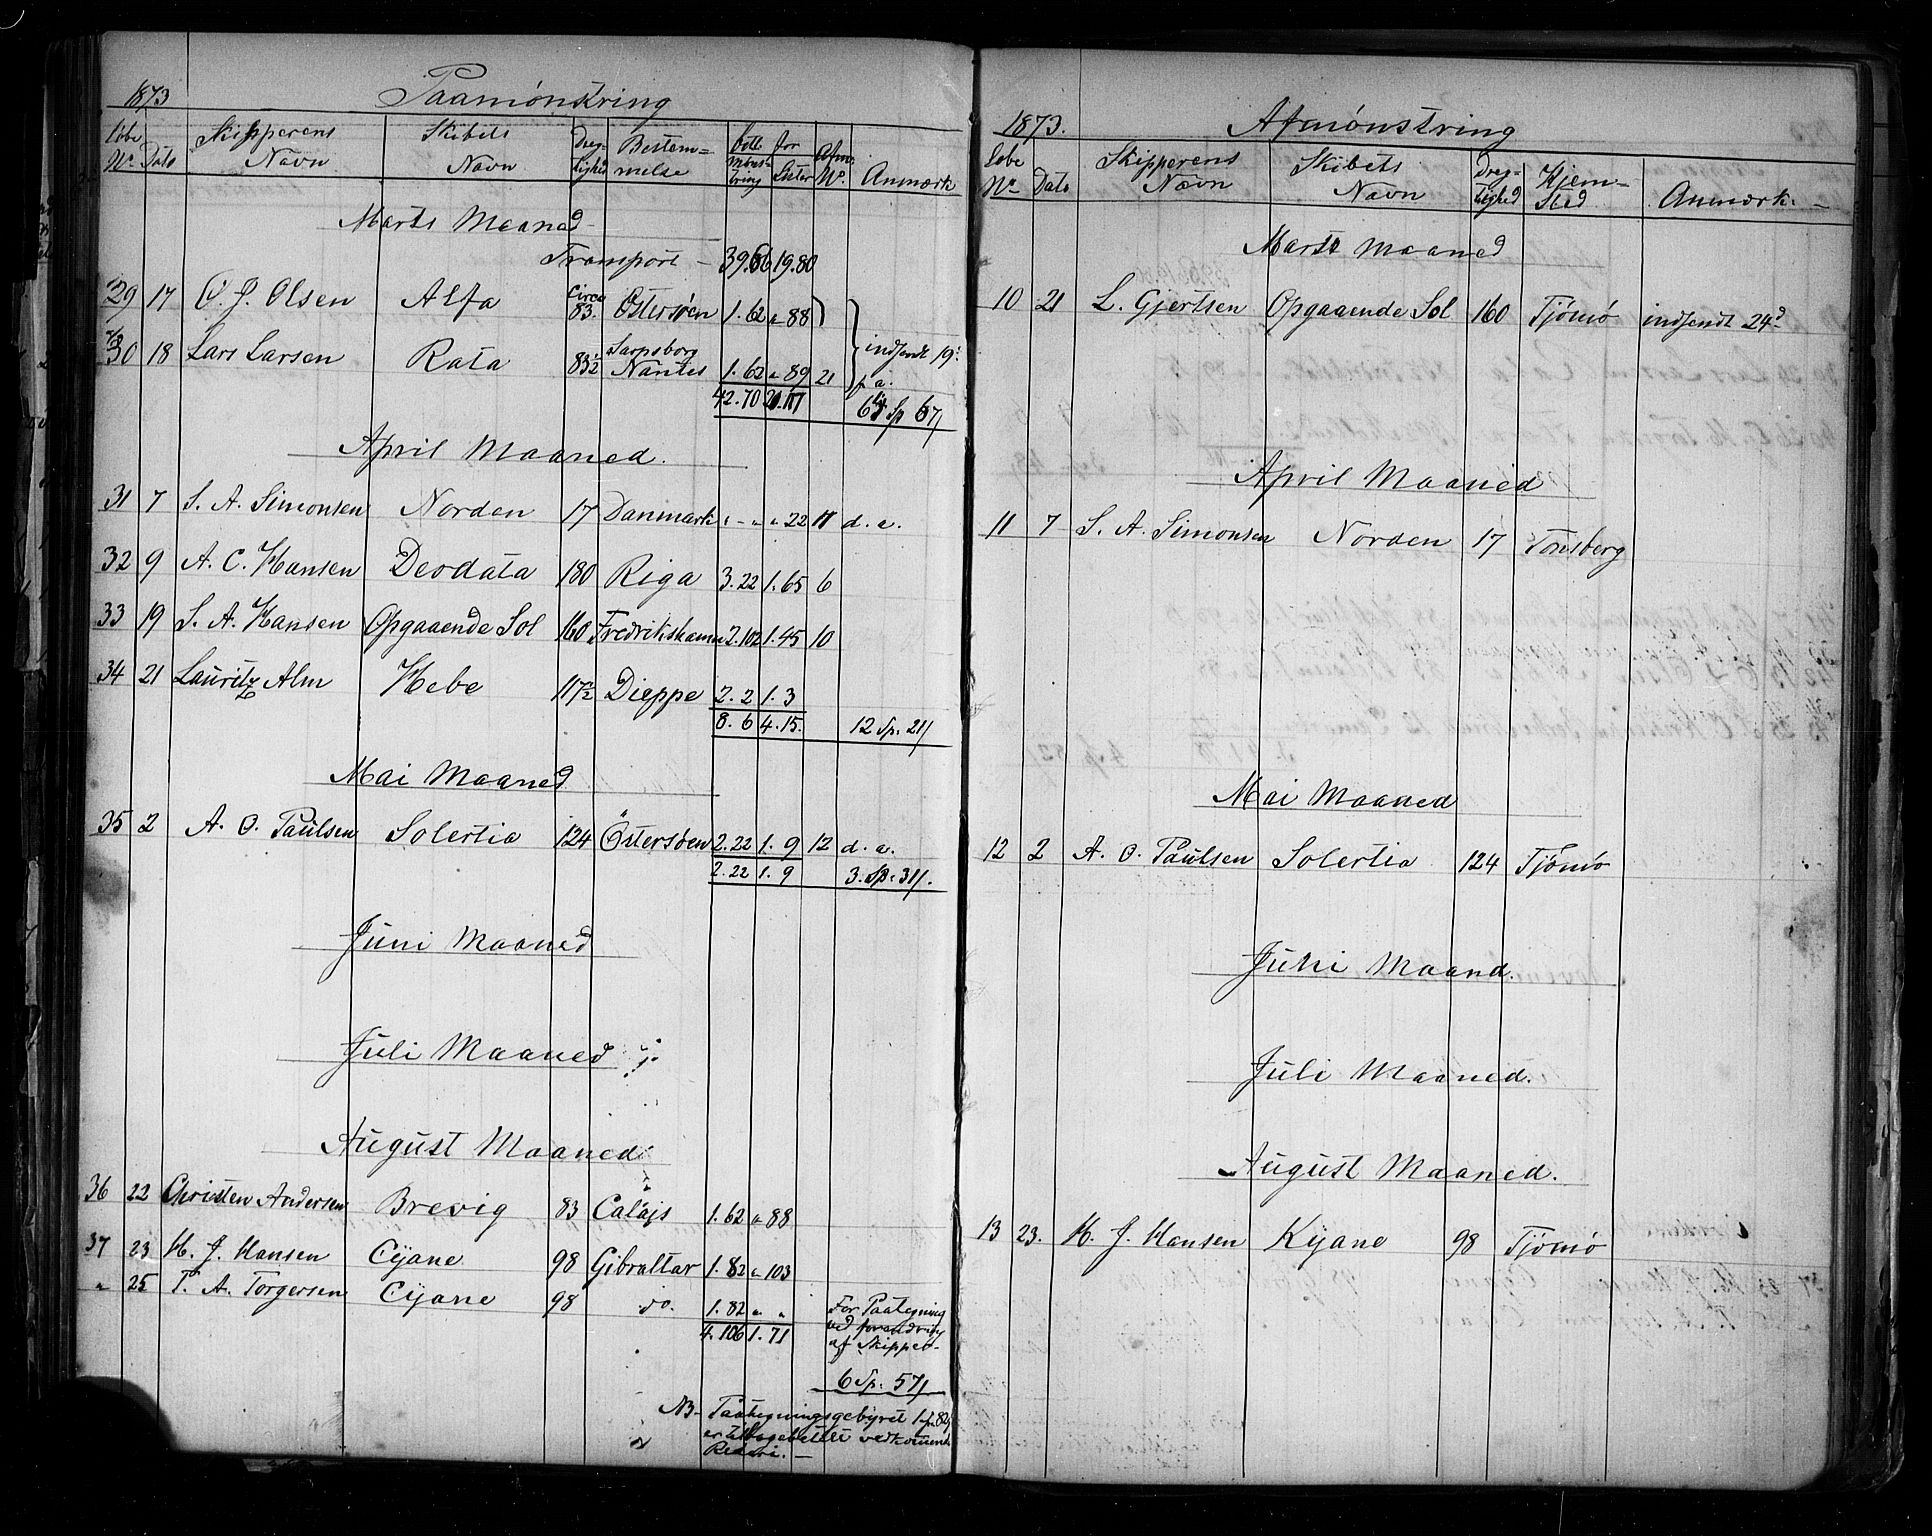 1873 Paamønstring
Løbe No. Dato Skipperens Navn Skibets Navn Dreg-tighed Bestem-melse for Mønst-ring for Lister Afm: No. Anmærk
Marts Maaned
Transport - 39.86 19.80
29 17 O. J. Olsen Alfa Circa 83. Østersøen 1.62 " 88
30 18 Lars Larsen Rata 83½ Sarpsborg Nantes 1.62 " 89 21 indsendt 19
42.70 21.17
April Maaned.
31 7 S. A. Simonsen Norden 17 Danmark " - " " 22 11 d. a.
32 9 A. C. Hansen Deodata 180 Riga 3.22 1.65 6
33 19 S. A. Hansen Opgaaende Sol 160 Fredrikshamn 2.102 1.45 10
34 21 Lauritz Alm Hebe 117½ Dieppe 2.2 1.3
8.6 4.15. 12 Sp. 21/
Mai Maaned
35 2 A. O. Paulsen Solertia 124 Østersøen 2.22 1.9 12 d. a.
2.22 1.9 3. Sp. 31/.
Juni Maaned
Juli Maaned
August Maaned
36 22 Christen Andersen Brevig 83 Calajs 1.62 " 88
37 23 H. J. Hansen Cyane 98 Gibraltar 1.82 " 103
" 25 T. A. Torgersen Cyane 98 do. 1.82 " " For Paategning
ved forandring
4.106 1.71 af Skipper-
6 Sp. 57/
NB- Paategningsgebyret 1 sp 82/
er tilbagebetalt vedkommende
Rederi. -
1873. Afmønstring
Løbe No Dato Skipperens Navn Skibets Navn Dreg-tighed Hjem-sted Anmærk.
Marts Maaned
10 21 L. Gjertsen Opgaaende Sol 160 Tjømø indsendt 24d
April Maaned
11 7 S. A. Simonsen Norden 17 Tønsberg
Mai Maaned
12 2 A. O. Paulsen Solertia 124 Tjømø
Juni Maand.
Juli Maaned.
August Maaned.
13 23. H. J. Hansen Kyane 98 Tjømø